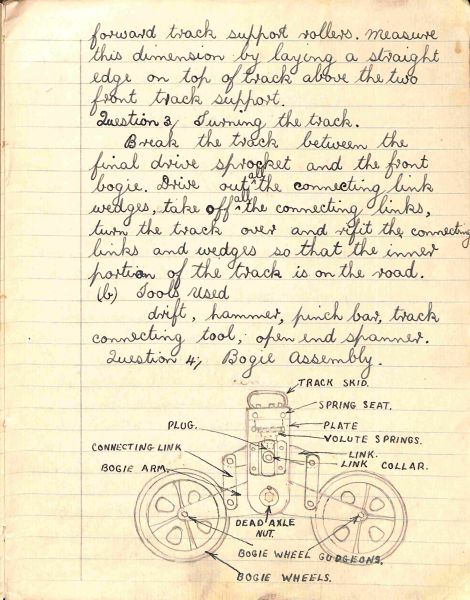 forward track support rollers. Measure
this dimension by laying a straight
edge on top of track above the two
front track support.
Question 3, Turning the track.
Break the track between the
final drive sprocket and the front
bogie. Drive out all the connecting link
wedges, take off all the connecting links,
turn the track over and refit the connecting
links and wedges so that the inner
portion of the track is on the road.
(b) Tools Used
drift, hammer, pinch bar, track
connecting tool, open end spanner.
Question 4, Bogie Assembly.
TRACK SKID.
SPRING SEAT.
PLUG.
PLATE
VOLUTE SPRINGS.
CONNECTING LINK
LINK.
BOGIE ARM.
LINK COLLAR.
DEAD AXLE
NUT.
BOGIE WHEEL GUDGEONS.
BOGIE WHEELS.